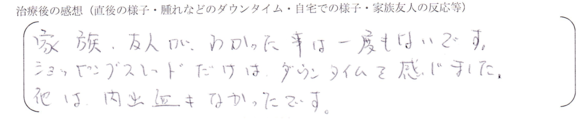 治療後の感想（直後の様子・腫れなどのダウンタイム・自宅での様子・家族友人の反応等）
家族、友人が、わかった事は一度もないです。
ショッピングスレッドだけは、ダウンタイムを感じました。
他は、内出血もなかったです。